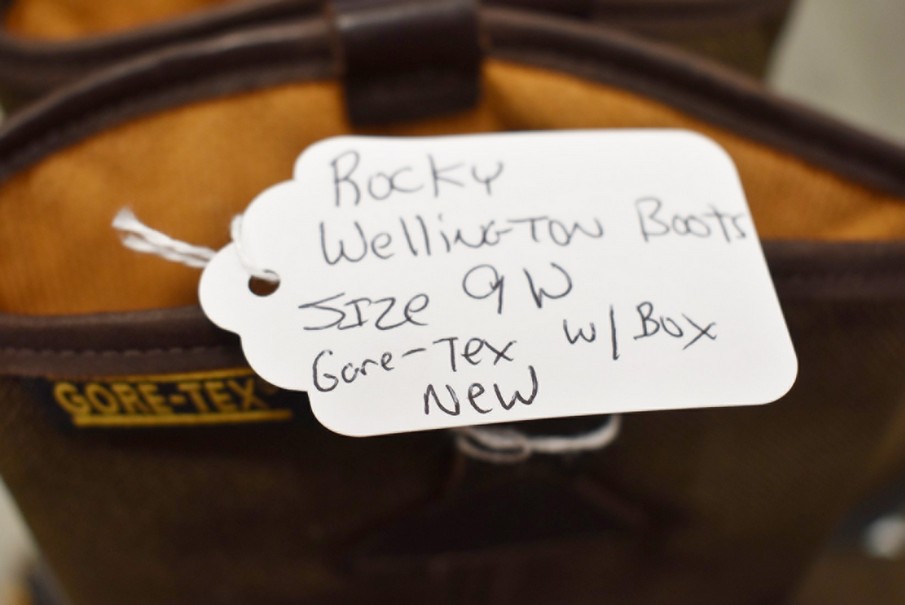 Rocky
Wellington Boots
Size 9W
Gore-Tex w/Box
New
GORE-TEX®